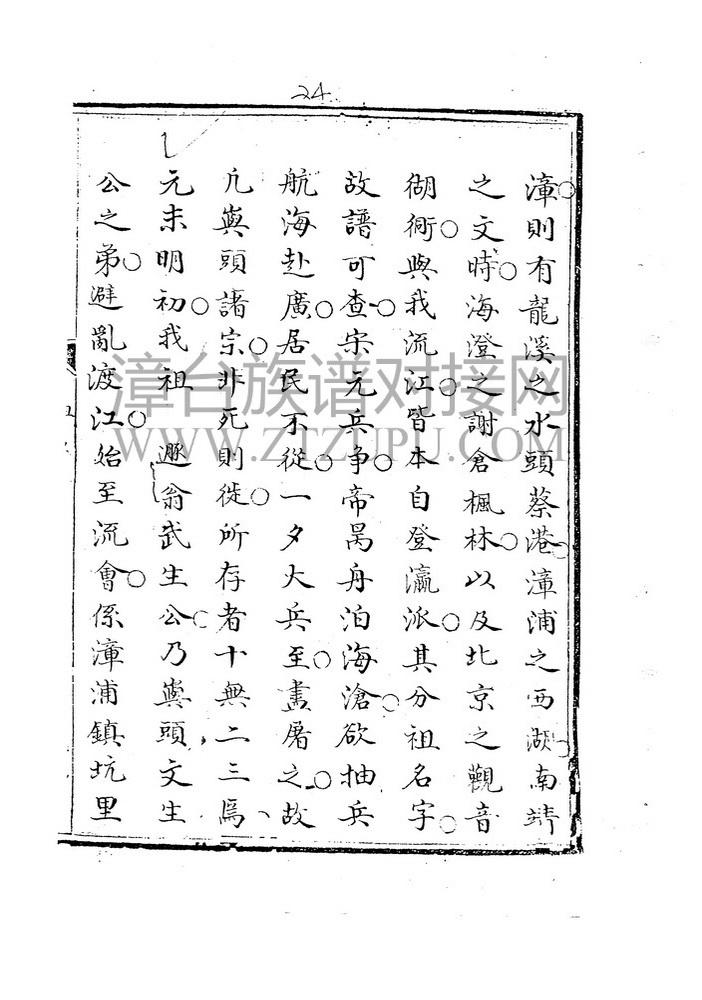 24
漳則有龍溪之水頭蔡港漳浦之西湖南靖
之文時海澄之謝倉楓林以及北京之觀音
衚衕與我流江皆本自登瀛派其分祖名字
故譜可查宋元兵爭帝昺舟泊海滄欲抽兵
航海赴廣居民不從一夕大兵至盡屠之故
凡與頭諸宗非死則徙所存者十無二三焉
元末明初我祖 遯翁武生公乃與頭文生
公之弟避亂渡江始至流會係漳浦鎮坑里
漳台族谱对接网
WWW.ZTZUPU.COM